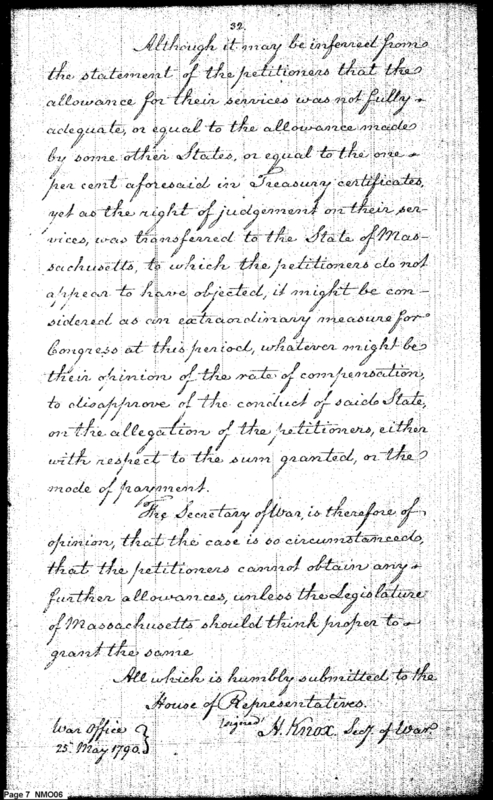 32.
Although it may be inferred from
the statement of the petitioners that the
allowance for their services was not fully
adequate, or equal to the allowance made
by some other States, or equal to the one
per cent aforesaid in Treasury certificates,
yet as the right of judgement on their ser-
vices, was transferred to the State of Mas-
sachusetts, to which the petitioners do not
appear to have objected, it might be con-
sidered as an extraordinary measure for
Congress at this period, whatever might be
their opinion of the rate of compensation,
to disapprove of the conduct of said State,
on the allegation of the petitioners, either
with respect to the sum granted, or the
mode of payment.
The Secretary of War, is therefore of
opinion, that the case is so circumstanced,
that the petitioners cannot obtain any
further allowances, unless the Legislature
of Massachusetts should think proper to
grant the same
All which is humbly submitted to the
House of Representatives.
(signed) H. Knox Secy. of War.
War Office
25. May 1790.
Page 7 NMO06